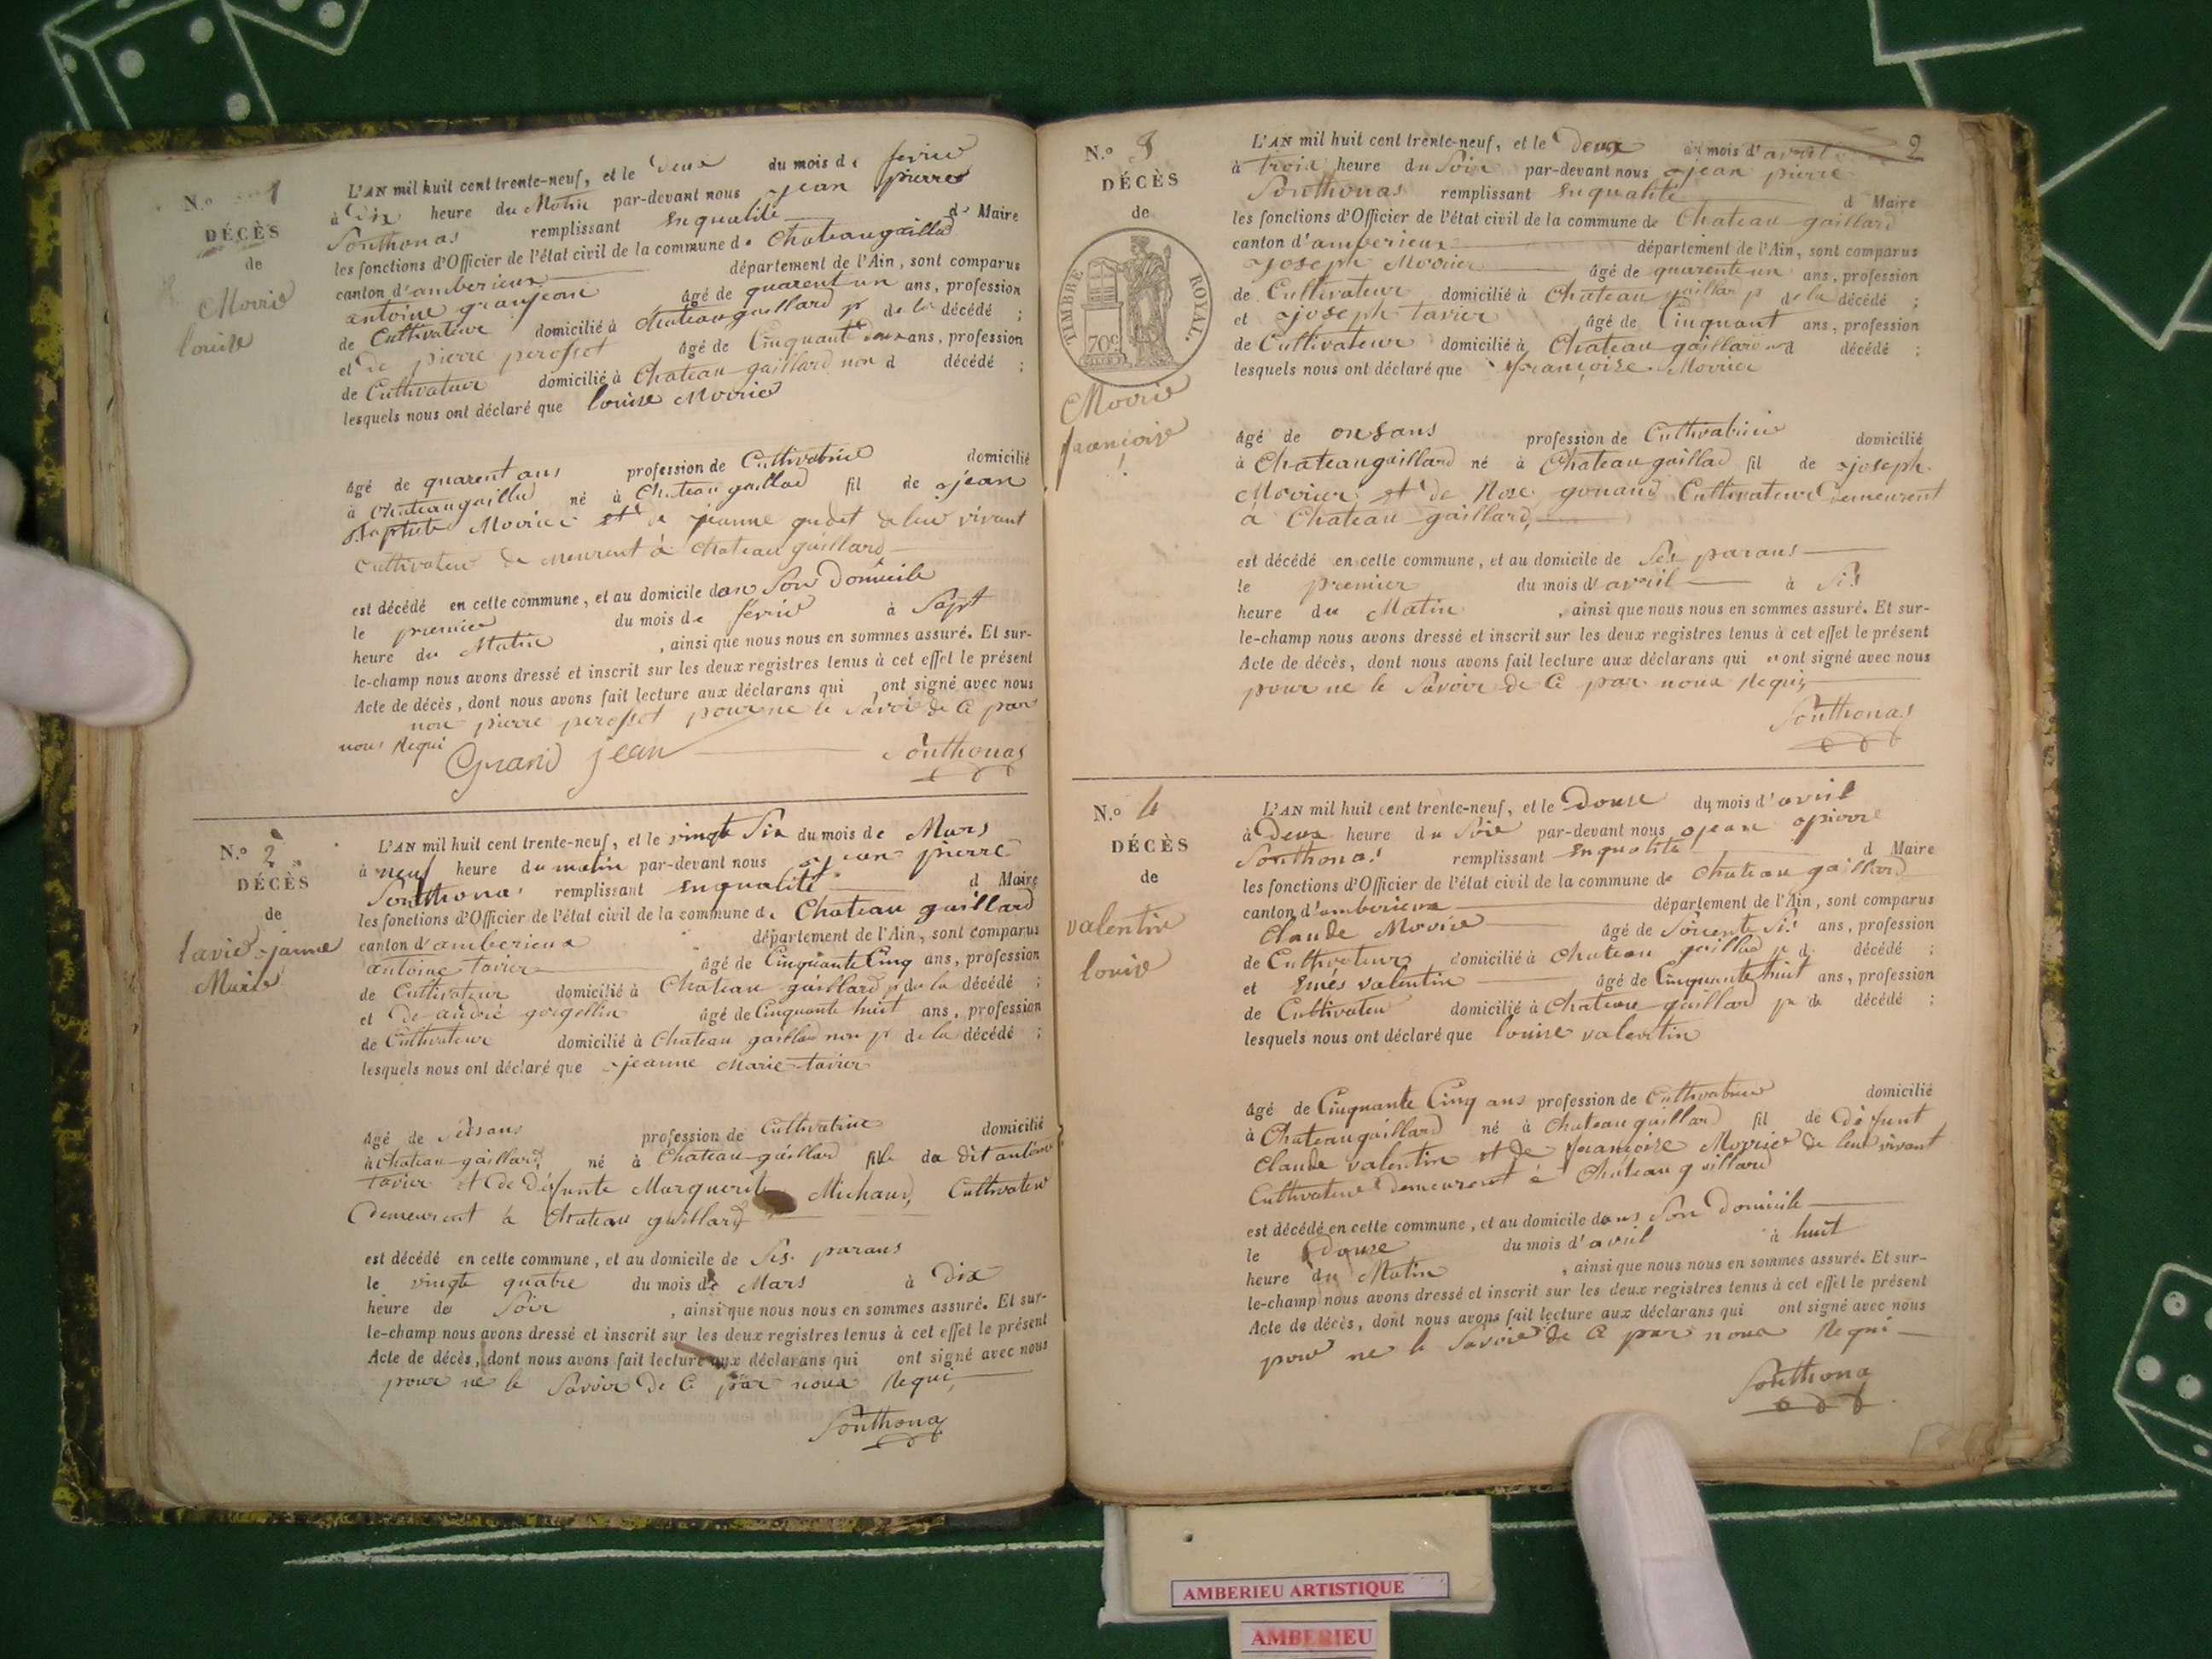 N.o 1
DÉCÈS
de
Movrié
louise
L'AN mil huit cent trente-neuf, et le deux du mois de fevrie
à dix heure du Matin par-devant nous jean pierre
Southonas remplissant en qualité d Maire
les fonctions d'Officier de l'état civil de la commune de Chateaugaillad
canton d'amberieux département de l'Ain, sont comparus
antoine granjean âgé de quarent un ans, profession
de Cultivateur domicilié à chateaugaillard p de la décédé ;
et de pierre perosset âgé de Cinquante deux ans, profession
de Cultivateur domicilié à Chateau gaillard non d décédé ;
lesquels nous ont déclaré que louise Movrié
âgé de quarent ans profession de Cultivatrice domicilié
à chateaugaillad né à Chateau gaillad fil de jean
Baptiste Movrié et de jeanne gudet de leur vivant
cultivateur demeurent à chateau gaillard
est décédé en cette commune, et au domicile dans Son Domicile
le premier du mois de févrié à Sapt
heure du Matin , ainsi que nous nous en sommes assuré. Et sur-
le-champ nous avons dressé et inscrit sur les deux registres tenus à cet effet le présent
Acte de décès, dont nous avons fait lecture aux déclarans qui ont signé avec nous
non pierre perosset pour ne le Savoir de Ce par
nous Requi
Grand jean Southonas
N.o 2
DÉCÈS
de
tavié jeanne
Marie
L'AN mil huit cent trente-neuf, et le vingt Six du mois de Mars
à neuf heure du matin par-devant nous jean pierre
Southonas remplissant en qualité d Maire
les fonctions d'Officier de l'état civil de la commune de Chateau gaillard
canton d'amberieux département de l'Ain, sont comparus
antoine tavier âgé de Cinquante Cinq ans, profession
de Cultivateur domicilié à Chateau gaillard p de la décédé ;
et de andré gorgellin âgé de Cinquante huit ans, profession
de Cultivateur domicilié à Chateau gaillard non p de la décédé ;
lesquels nous ont déclaré que jeanne Marie tavier
âgé de profession de Cultivatrice domicilié
à Chateau-gaillard né à Chateau-gaillard fille du dit antoine
tavier et de défunte Marguerite Michaud, Cultivateur
Demeurent à Chateau gaillard
est décédé en cette commune, et au domicile de Ses parans
le vingt quatre du mois de Mars à Dix
heure de Soir , ainsi que nous nous en sommes assuré. Et sur-
le-champ nous avons dressé et inscrit sur les deux registres tenus à cet effet le présent
Acte de décès, dont nous avons fait lecture aux déclarans qui ont signé avec nous
pour ne le Savoir de Ce par nous Requi
Southonas
2
N.o 3
DÉCÈS
de
TIMBRE ROYAL.
70c
Movrié
françoise
L'AN mil huit cent trente-neuf, et le deux du mois d'avril
à trois heure du Soir par-devant nous jean pierre
Southonas remplissant en qualité d Maire
les fonctions d'Officier de l'état civil de la commune de Chateau gaillard
canton d'amberieux département de l'Ain, sont comparus
joseph Movrier âgé de quarente un ans, profession
de Cultivateur domicilié à Chateau gaillar p de la décédé ;
et joseph tavier âgé de Cinquant ans, profession
de Cultivateur domicilié à Chateau gaillard n d décédé ;
lesquels nous ont déclaré que françoise Movrier
âgé de onsans profession de Cultivatrice domicilié
à Chateaugaillard né à Chateaugaillad fil de joseph
Movrier et de Rose gonand Cultivateurs demeurent
à Chateau-gaillard,
est décédé en cette commune, et au domicile de Ses parans
le premier du mois d'avril à Sis
heure du Matin , ainsi que nous nous en sommes assuré. Et sur-
le-champ nous avons dressé et inscrit sur les deux registres tenus à cet effet le présent
Acte de décès, dont nous avons fait lecture aux déclarans qui n ont signé avec nous
pour ne le Savoir de Ce par nous Requis
Southonas
N.o 4
DÉCÈS
de
valentin
louise
L'AN mil huit cent trente-neuf, et le Douse du mois d'avril
à Deux heure du Soir par-devant nous jean pierre
Southonas remplissant en qualité d Maire
les fonctions d'Officier de l'état civil de la commune de Chateau gaillard
canton d'amberieux département de l'Ain, sont comparus
Claude Movrié âgé de Soicente Sis ans, profession
de Cultivateur domicilié à Chateau gaillad p d décédé ;
et valentin âgé de Cinquante huit ans, profession
de Cultivateur domicilié à Chateau gaillard p de décédé ;
lesquels nous ont déclaré que louise valentin
âgé de Cinquante Cinq ans profession de Cultivatrice domicilié
à Chateaugaillard né à Chateaugaillard fil de défunt
Claude valentin et de françoise Movrier de leur vivant
Cultivateur demeurent à Chateau gaillard
est décédé en cette commune, et au domicile dans Son Domicile
le Douse du mois d'avril à huit
heure du Matin , ainsi que nous nous en sommes assuré. Et sur-
le-champ nous avons dressé et inscrit sur les deux registres tenus à cet effet le présent
Acte de décès, dont nous avons fait lecture aux déclarans qui ont signé avec nous
pour ne le Savoir de Ce par nous Requi
Southona
AMBERIEU ARTISTIQUE
AMBERIEU